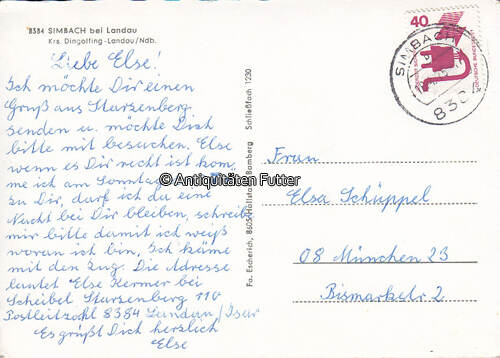 8384 SIMBACH bei Landau
Krs. Dingolfing-Landau/Ndb.
Liebe Else!
Ich möchte Dir einen
Gruß aus Starzenberg
senden u. möchte Dich
bitte mit besuchen. Else
wenn es Dir recht ist kom„
me ich am Sonntag
zu Dir, darf ich da eine
Nacht bei Dir bleiben, schreib
mir bitte damit ich weiß
woran ich bin, Ich käme
mit den Zug. Die Adresse
lautet Else Kermer bei
Scheibel Starzenberg 110
Postleitzahl 8384 Landau/Isar
Es grüßt Dich herzlich
Else
Fa. Escherich, 8605 Hallstadt/Bamberg Schließfach 1230
40
DEUTSCHE BUNDESPOST
SIMBACH
8384
Frau
Elsa Schüppel
08 München 23
Bismarkstr. 2
© Antiquitäten Futter